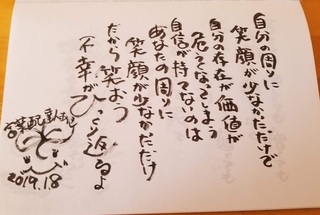 自分の周りに
笑顔が少なかただけで
自分の存在が価値が
危くなってしまう
自信が持てないのは
あなたの周りに
笑顔が少なかただけ
だから笑おう
不幸がひっくり返るよ
2019.1.8